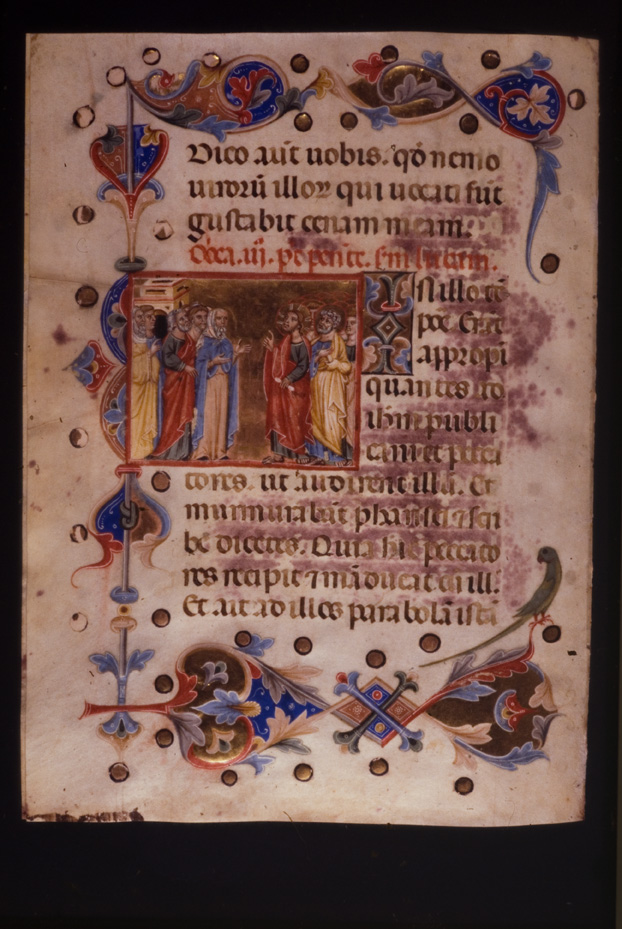 Dico aut̄ uobis. qđ nemo
uiroꝝ illoꝝ qui uocati sūt
gustabit cenam meam.
Dn̄ca .iii. pꝰ pent̄. 
In illo tē
poꝛe Erāt
appropi
quantes
ihm̄ publi
cani et pcca
tores. ut audirent illū. Et
murmurabāt pharisei ⁊ scri
be dicētes. Quia hic peccato
res recipit ⁊ māducat cū ill.
Et ait ad illos parabolā istā